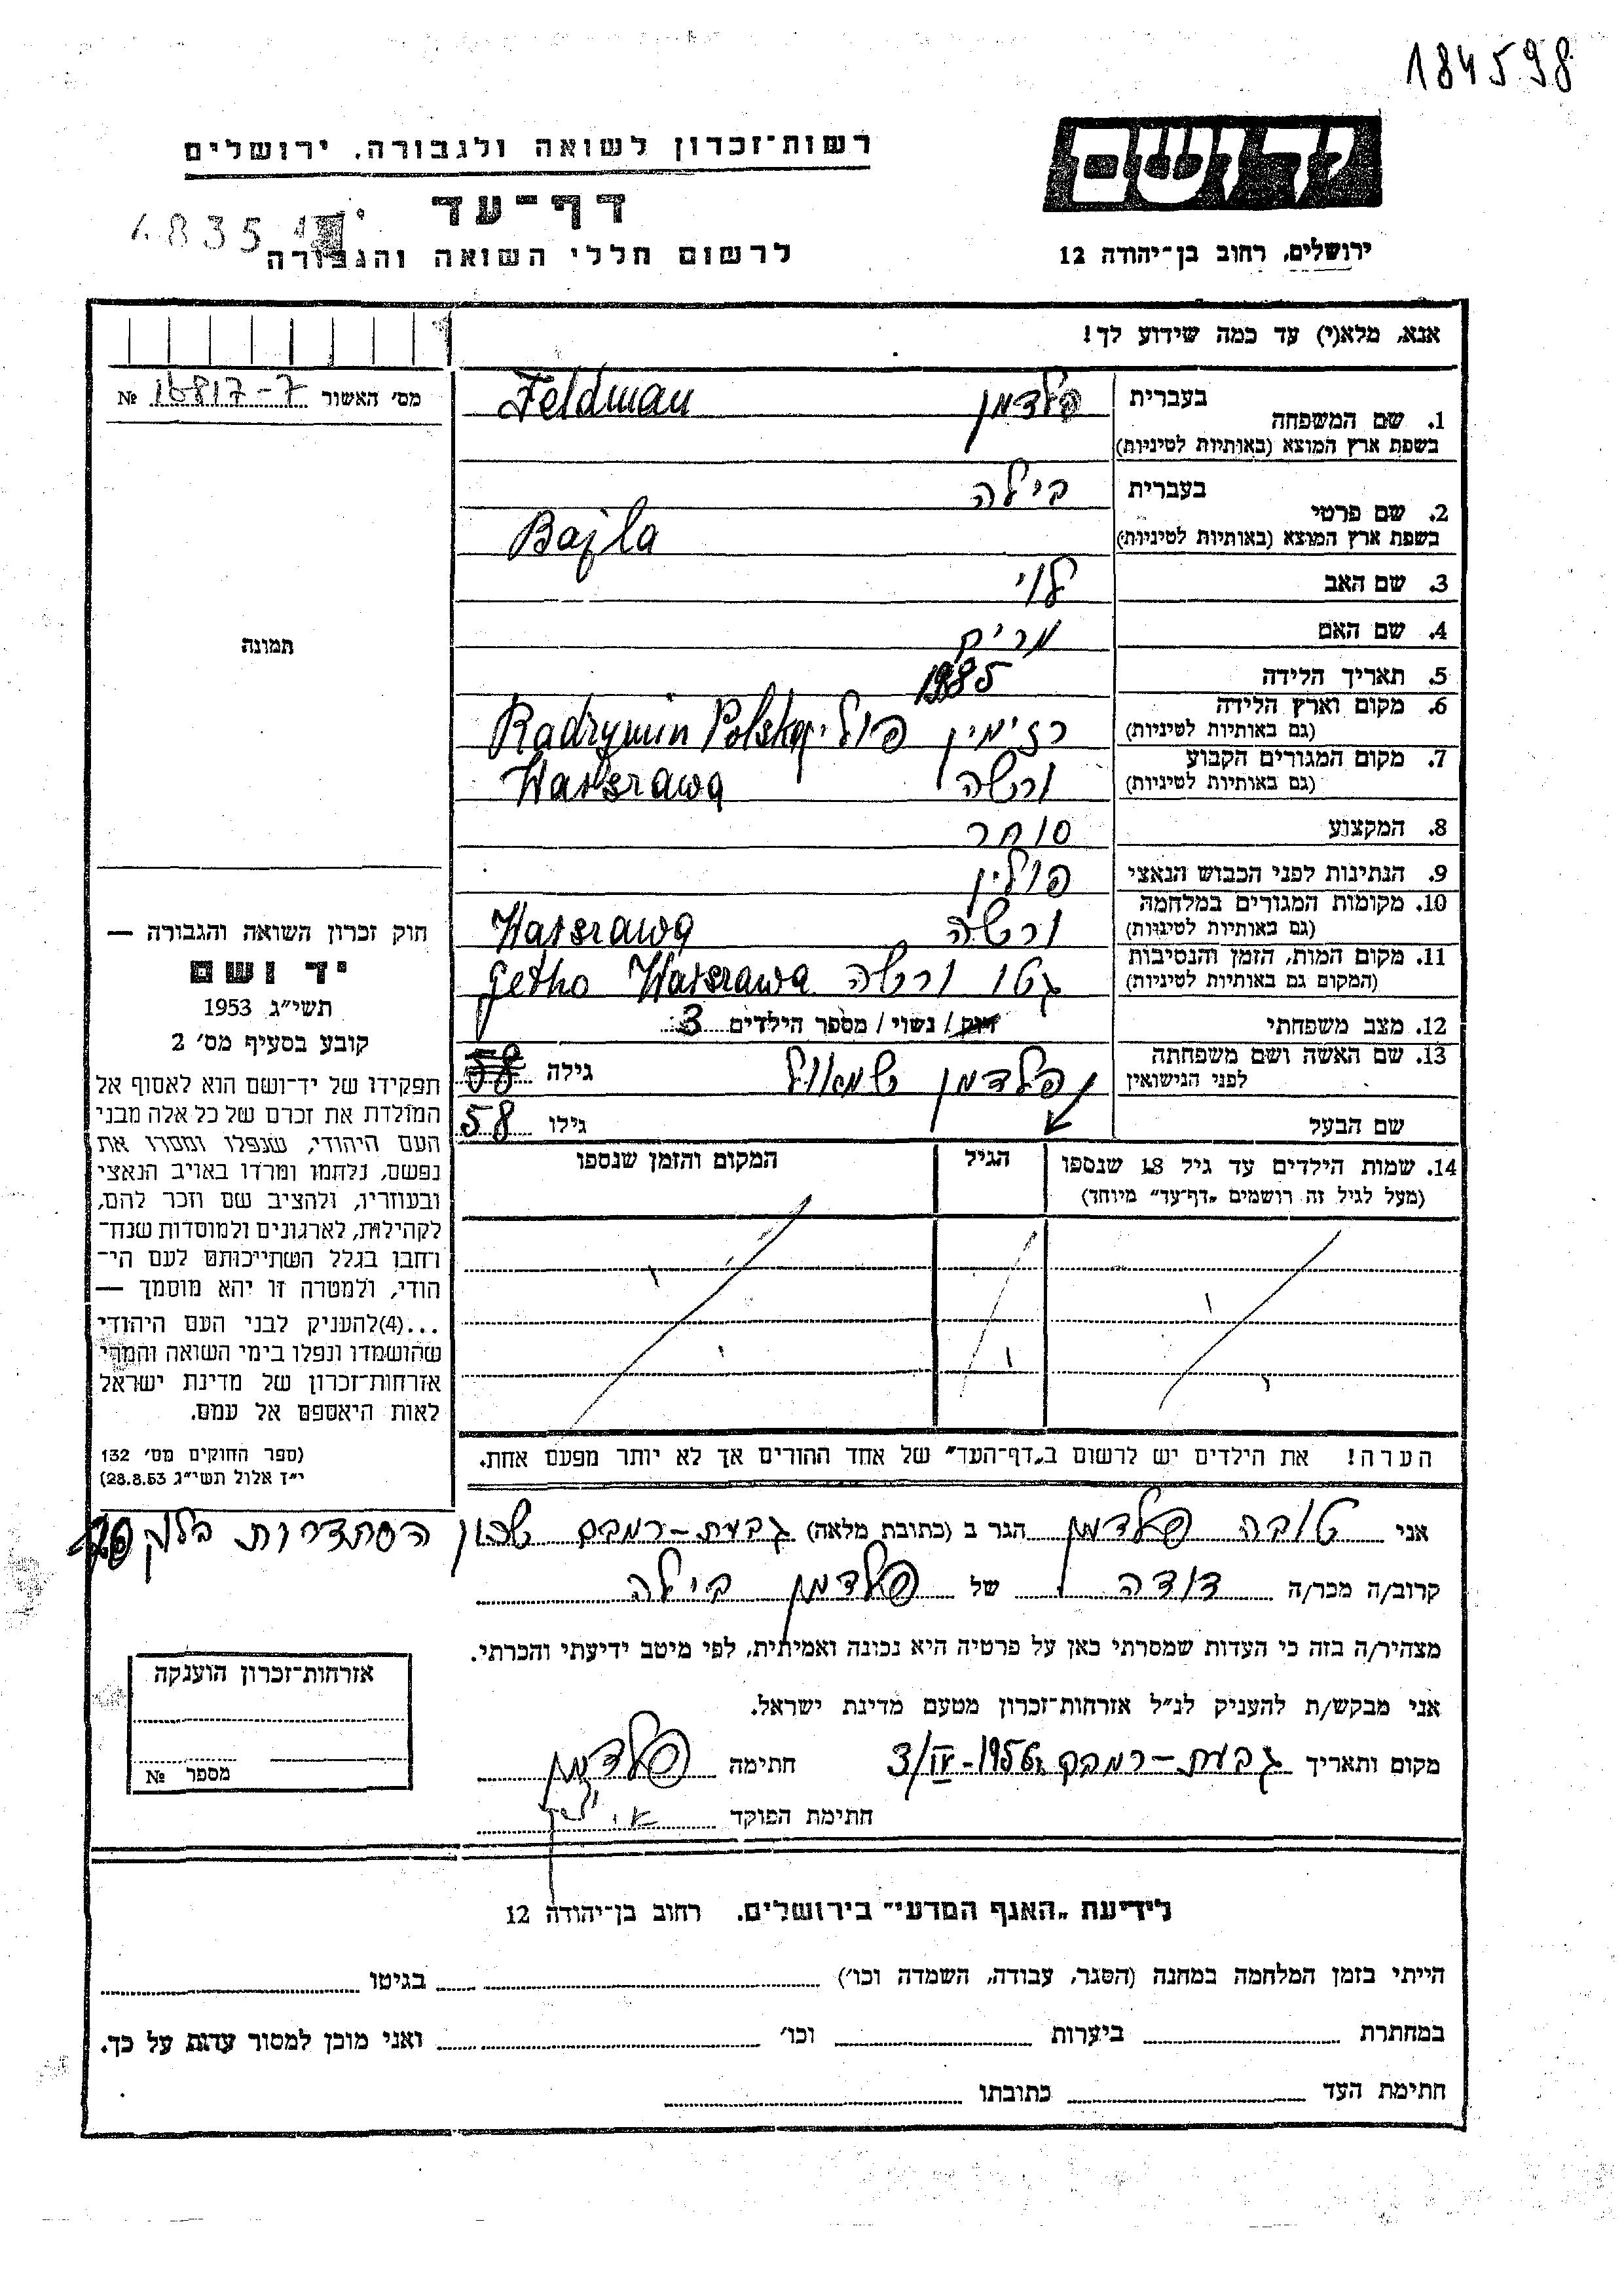 184598
יד ושם
ירושלים, רחוב בן־יהודה 12
רשות־זכרון לשואה ולגבורה, ירושלים
דף־עד
לרשום חללי השואה והגבורה
אנא, מלא(י) עד כמה שידוע לך!
מס׳ האשור № 16817-7
1. שם המשפחה בעברית פלדמן
בשפת ארץ המוצא (באותיות לטיניות) Feldman
2. שם פרטי בעברית בילה
בשפת ארץ המוצא (באותיות לטיניות) Bajla
3. שם האב לוי
4. שם האם
5. תאריך הלידה
6. מקום וארץ הלידה (גם באותיות לטיניות) רזימין Radzymin Polska
7. מקום המגורים הקבוע (גם באותיות לטיניות) ורשה Warszawa
8. המקצוע סוחר
9. הנתינות לפני הכבוש הנאצי פולין
10. מקומות המגורים במלחמה (גם באותיות לטיניות) ורשה Warszawa
11. מקום המות, הזמן והנסיבות (המקום גם באותיות לטיניות) גטו ורשה Getho Warszawa
12. מצב משפחתי רווק / נשוי / מספר הילדים 3
13. שם האשה ושם משפחתה לפני הנישואין פלדמן שמואל גילה 58
שם הבעל גילו 58
14. שמות הילדים עד גיל 18 שנספו הגיל המקום והזמן שנספו
(מעל לגיל זה רושמים „דף־עד” מיוחד)
הערה! את הילדים יש לרשום ב„דף־העד” של אחד ההורים אך לא יותר מפעם אחת.
תמונה
חוק זכרון השואה והגבורה —
יד ושם
תשי״ג 1953
קובע בסעיף מס׳ 2
תפקידו של יד־ושם הוא לאסוף אל
המולדת את זכרם של כל אלה מבני
העם היהודי, שנפלו ומסרו את
נפשם, נלחמו ומרדו באויב הנאצי
ובעוזריו, ולהציב שם וזכר להם,
לקהילות, לארגונים ולמוסדות שנח־
רחבו בגלל השתייכותם לעם הי־
הודי, ולמטרה זו יהא מוסמך —
...(4)להעניק לבני העם היהודי
שהושמדו ונפלו בימי השואה והמרי
אזרחות־זכרון של מדינת ישראל
לאות היאספם אל עמם.
(ספר החוקים מס׳ 132
י״ז אלול תשי״ג 28.8.53)
אני טובה פלדמן הגר ב (כתובת מלאה) גבעת-רמבם שכון הסתדרות בלוק
קרוב/ה מכר/ה דודה של פלדמן בילה
מצהיר/ה בזה כי העדות שמסרתי כאן על פרטיה היא נכונה ואמיתית, לפי מיטב ידיעתי והכרתי.
אני מבקש/ת להעניק לנ״ל אזרחות־זכרון מטעם מדינת ישראל.
מקום ותאריך גבעת-רמבם 3/IV-1956 חתימה פלדמן
חתימת הפוקד
אזרחות־זכרון הוענקה
מספר №
לידיעת „האגף המדעי” בירושלים, רחוב בן־יהודה 12
הייתי בזמן המלחמה במחנה (הסגר, עבודה, השמדה וכו׳) בגיטו
במחתרת ביערות וכו׳ ואני מוכן למסור עדות על כך.
חתימת העד כתובתו